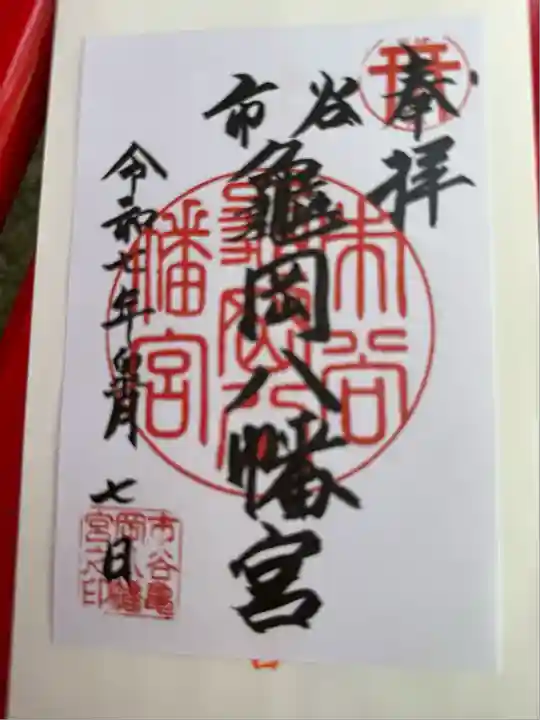 奉拝
市谷
龜岡八幡宮
令和七年皐月七日
市谷
八幡宮
市谷亀
岡八幡
宮之印